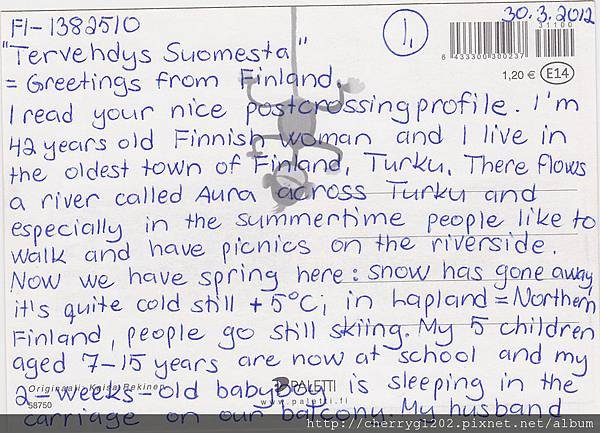 FI-1382510
30.3.2012
1.
"Tervehdys Suomesta"
31100
6 433300 300237
= Greetings from Finland.
1,20 € E14
I read your nice postcrossing profile. I'm
42 years old Finnish woman and I live in
the oldest town of Finland, Turku. There flows
a river called Aura across Turku and
especially in the summertime people like to
walk and have picnics on the riverside.
Now we have spring here: snow has gone away,
it's quite cold still +5°C; in Lapland = Northern
Finland, people go still skiing. My 5 children
aged 7-15 years are now at school and my
Originaali: Kaisa PALETTI
2-weeks-old babyboy is sleeping in the
58750 www.paletti.fi
carriage on our balcony. My husband
http://cherrygl202.pixnet.net/album